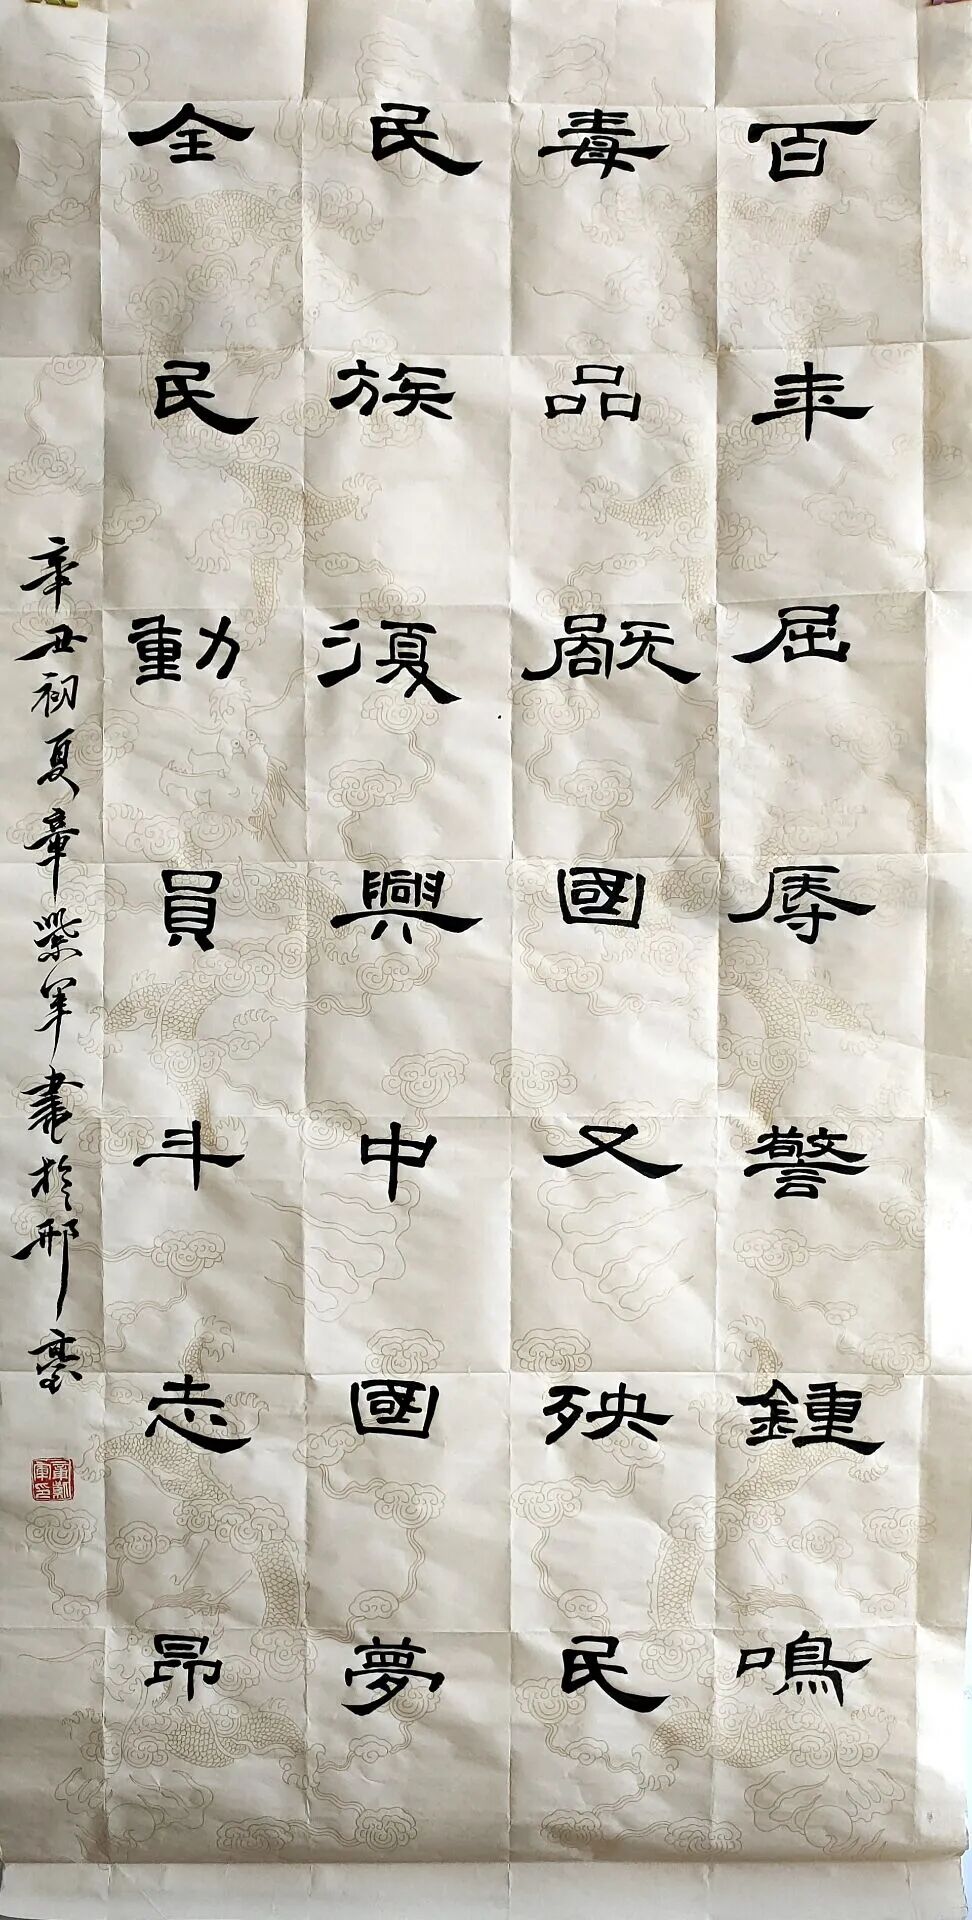 百年屈辱警鍾鳴
毒品嚴國又殃民
民族復興中國夢
全民動員斗志昂
辛丑初夏章榮軍書於邢臺